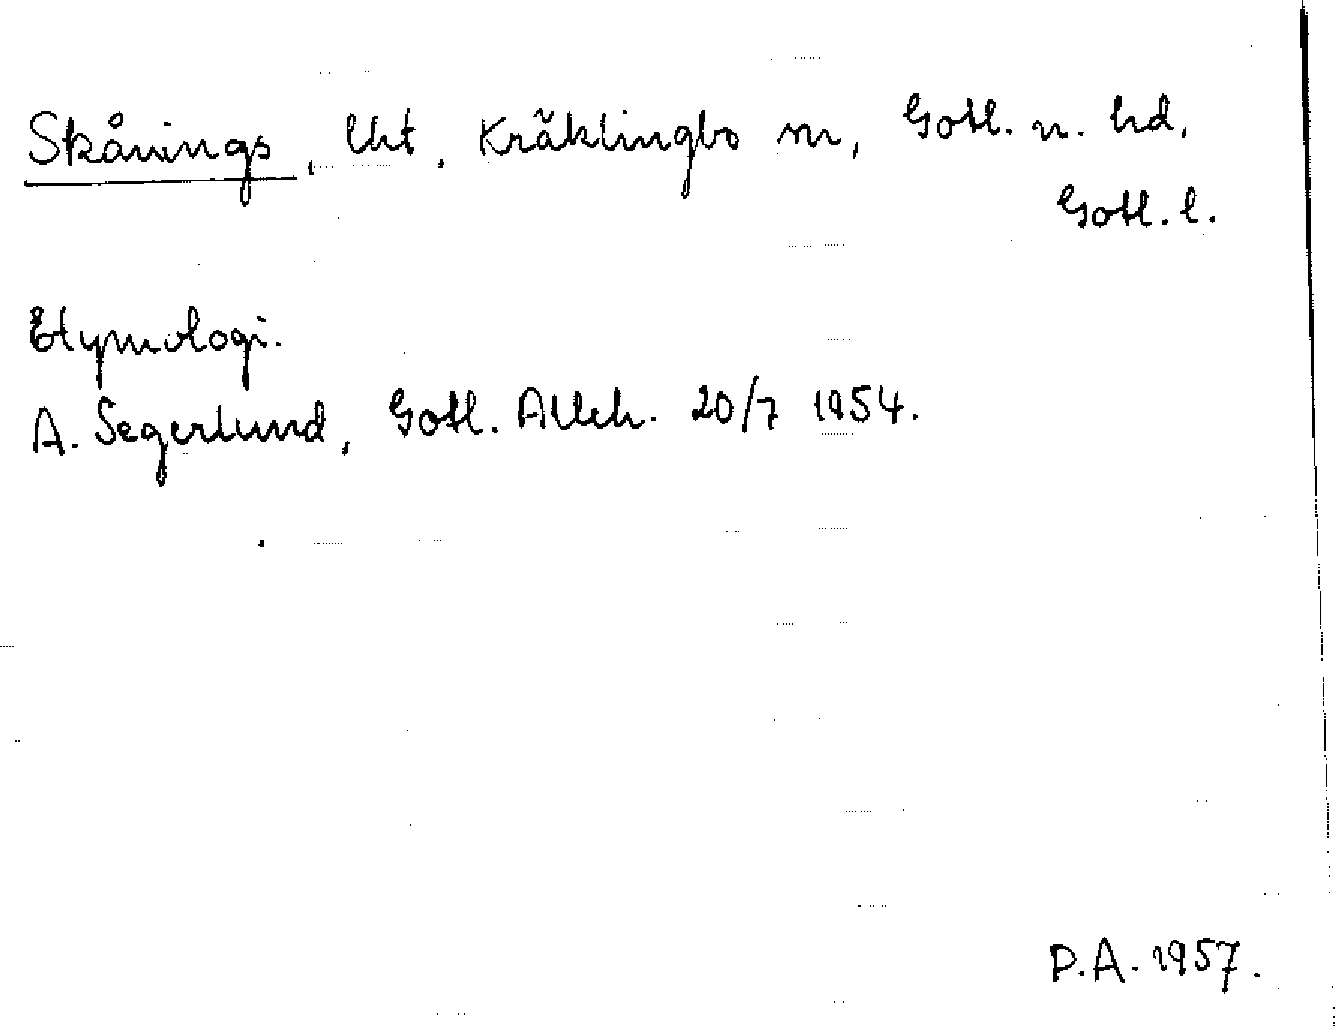 Skånings, lht, Kräklingbo sn, Gotl. n. hd,
Gotl. l.
Etymologi.
A. Segerlund, Gotl. Alleh. 20/7 1954.
P.A. 1957.